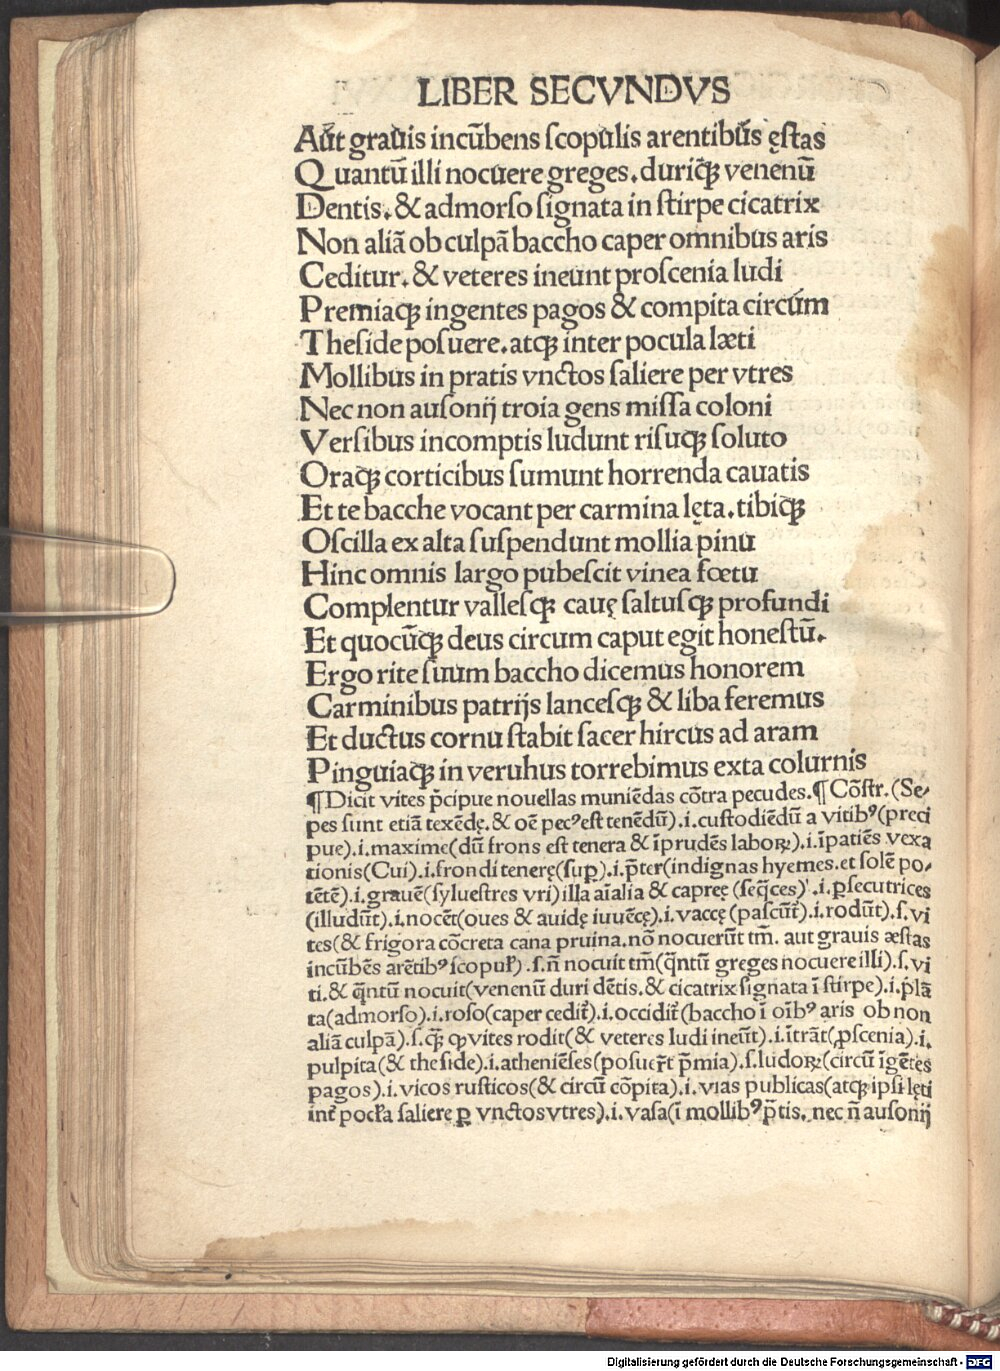 LIBER SECVNDVS
Aut grauis incūbens scopulis arentibus ęstas
Quantū illi nocuere greges. duriqꝫ venenū
Dentis. & admorso signata in stirpe cicatrix
Non aliā ob culpā baccho caper omnibus aris
Ceditur. & veteres ineunt proscenia ludi
Premiaqꝫ ingentes pagos & compita circum
Theside posuere. atqꝫ inter pocula læti
Mollibus in pratis vnctos saliere per vtres
Nec non ausonij troia gens missa coloni
Versibus incomptis ludunt risuqꝫ soluto
Oraqꝫ corticibus sumunt horrenda cauatis
Et te bacche vocant per carmina lęta. tibiqꝫ
Oscilla ex alta suspendunt mollia pinu
Hinc omnis largo pubescit vinea fœtu
Complentur vallesqꝫ cauę saltusqꝫ profundi
Et quocūqꝫ deus circum caput egit honestū.
Ergo rite suum baccho dicemus honorem
Carminibus patrijs lancesqꝫ & liba feremus
Et ductus cornu stabit sacer hircus ad aram
Pinguiaqꝫ in veruhus torrebimus exta colurnis
¶Dicit vites p̄cipue nouellas muniēdas cōtra pecudes. ¶Cōstr. (Se/
pes sunt etiā texēdę. & oē pecꝰ est tenēdū). i. custodiēdū a vitibꝰ (preci
pue). i. maxime (dū frons est tenera & īprudēs laboꝝ). i. īpatiēs vexa
tionis (Cui). i. frondi tenerę (suꝑ). i. p̄ter (indignas hyemes. et solē po/
tētē). i. grauē (syluestres vri) illa aīalia & capreę (seq̄ces). i. ꝑsecutrices
(illudūt). i. nocēt (oues & auidę iuuēcę). i. vaccę (pascūt̄). i. rodūt). s. vi
tes (& frigora cōcreta cana pruina. nō nocuerūt tm̄. aut grauis æstas
incūbēs arētibꝰ scopul̵). s. n̄ nocuit tm̄ (q̄ntū greges nocuere illi). s. vi
ti. & q̄ntū nocuit (venenū duri dētis. & cicatrix signata ī stirpe). i. plā
ta (admorso). i. roso (caper cedit̄). i. occidit̄ (baccho ī oībꝰ aris ob non
aliā culpā). s. q̄ꝫ ꝙ vites rodit (& veteres ludi ineūt). i. ītrāt (ꝓscenia). i.
pulpita (& theside). i. atheniēses (posuer̄t p̄mia). s. ludoꝝ (circū īgētes
pagos). i. vicos rusticos (& circū cōpita). i. vias publicas (atqꝫ ipsi lęti
int̄ pocl̵a saliere ꝑ vnctos vtres). i. vasa (ī mollibꝰ p̄tis. nec n̄ ausonij
Digitalisierung gefördert durch die Deutsche Forschungsgemeinschaft - DFG